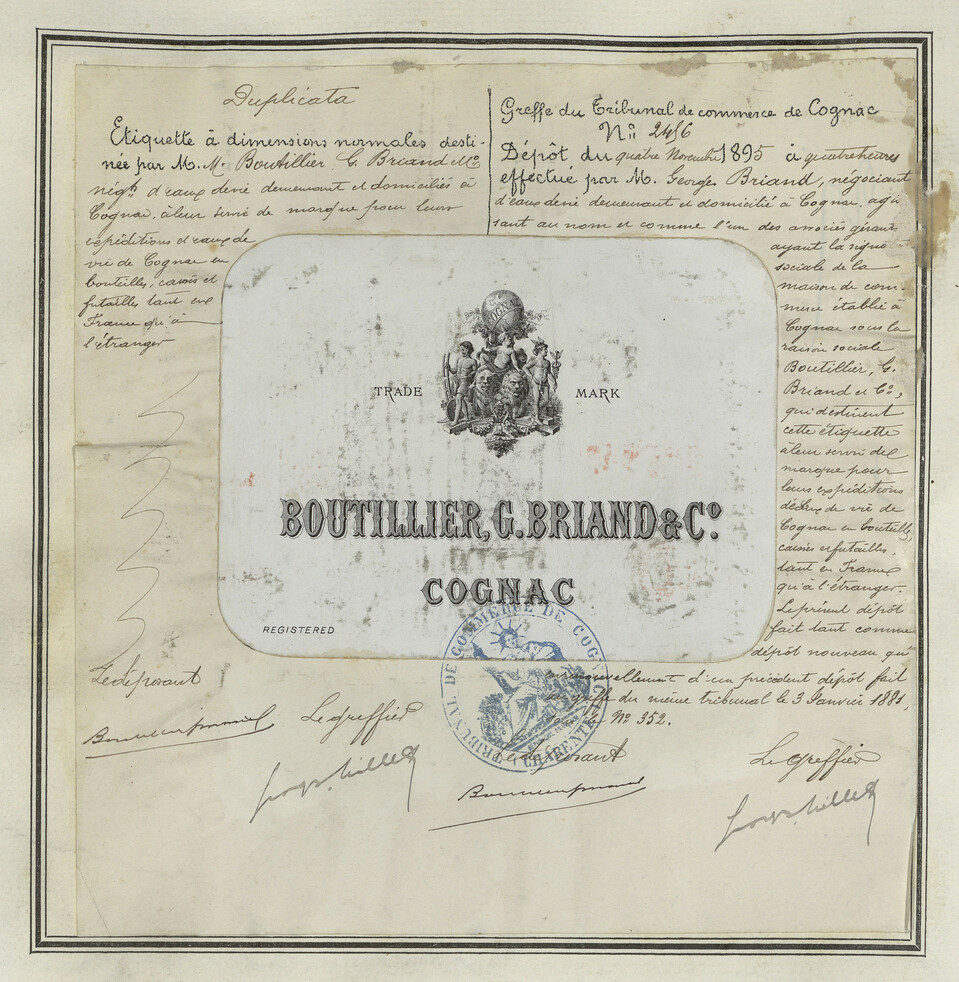 Duplicata
Etiquette à dimensions normales desti-
née par M. M. Boutillier G. Briand &
négts d'eaux de vie demeurant et domiciliés à
Cognac, à leur servir de marque pour leurs
expéditions d'eaux de
vie de Cognac en
bouteilles, caisses et
futailles tant en
France qu'à
l'étranger
Le déposant
Le greffier
Greffe du Tribunal de commerce de Cognac
No 2456
Dépôt du quatre Novembre 1895 à quatre heures
effectué par M. Georges Briand, négociant
d'eaux de vie demeurant et domicilié à Cognac, agis
sant au nom et comme l'un des associés gérants
ayant la signe
sociale de la
maison de com-
merce établie à
Cognac sous la
raison sociale
Boutillier, G.
Briand et Co,
qui destinent
cette étiquette
à leur servir de
marque pour
leurs expéditions
d'eaux de vie de
Cognac en bouteilles,
caisses et futailles,
tant en France
qu'à l'étranger.
Le présent dépôt
fait tant comme
dépôt nouveau qu'
en renouvellement d'un précédent dépôt fait
au greffe du même tribunal le 3 Janvier 1881,
sous le No 352.
Le déposant
Le Greffier
COGNAC
TRADE MARK
BOUTILLIER, G. BRIAND & Co.
COGNAC
REGISTERED
TRIBUNAL DE COMMERCE DE COGNAC
CHARENTE